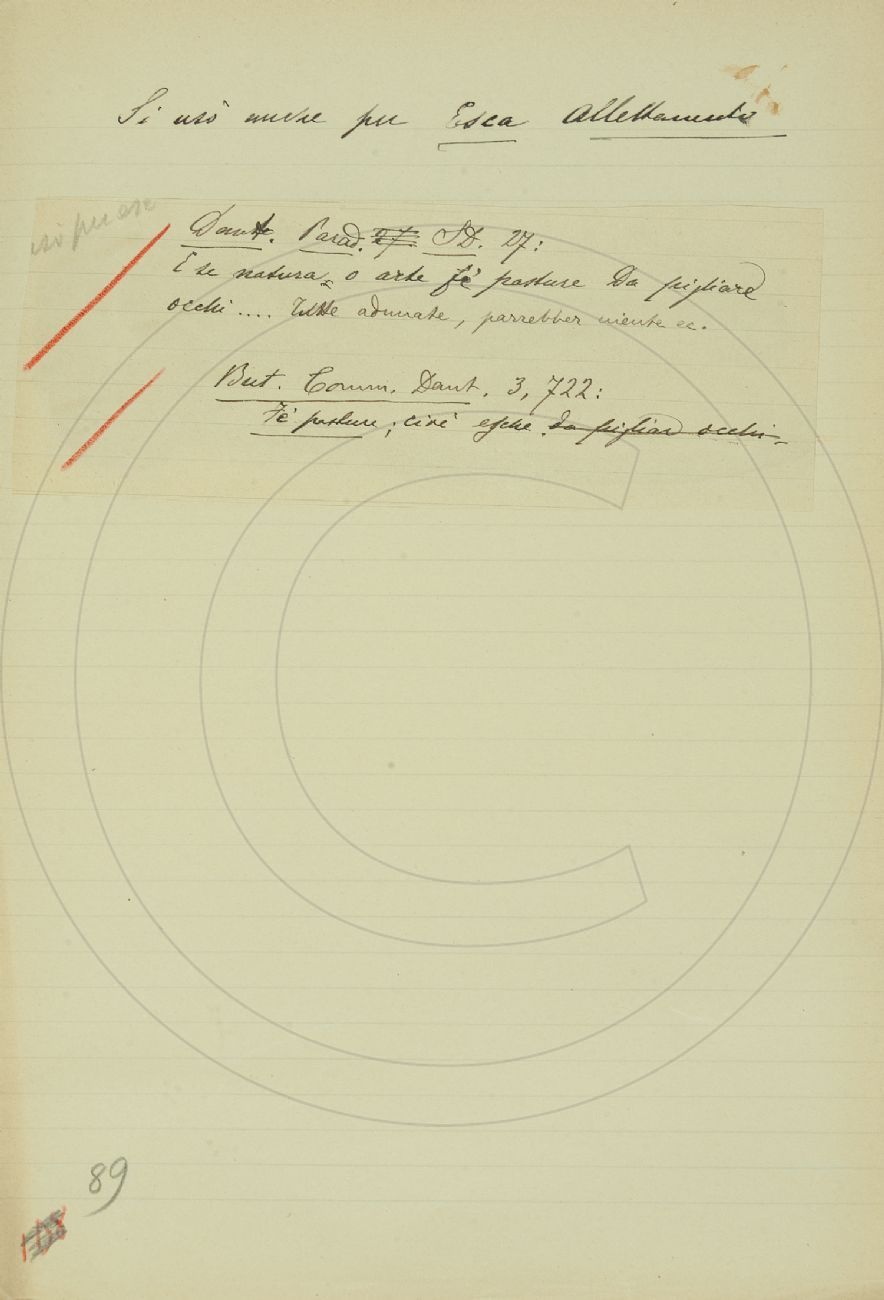 Si usò anche per Esca Allettamento
usò per esca
Dant. Parad. 27. SD. 27:
E se natura, o arte fè pasture Da pigliare
occhi.... Tutte adunate, parrebber niente ec.
But. Comm. Dant. 3, 722:
Fè pasture, cioè esche da pigliare occhi
89